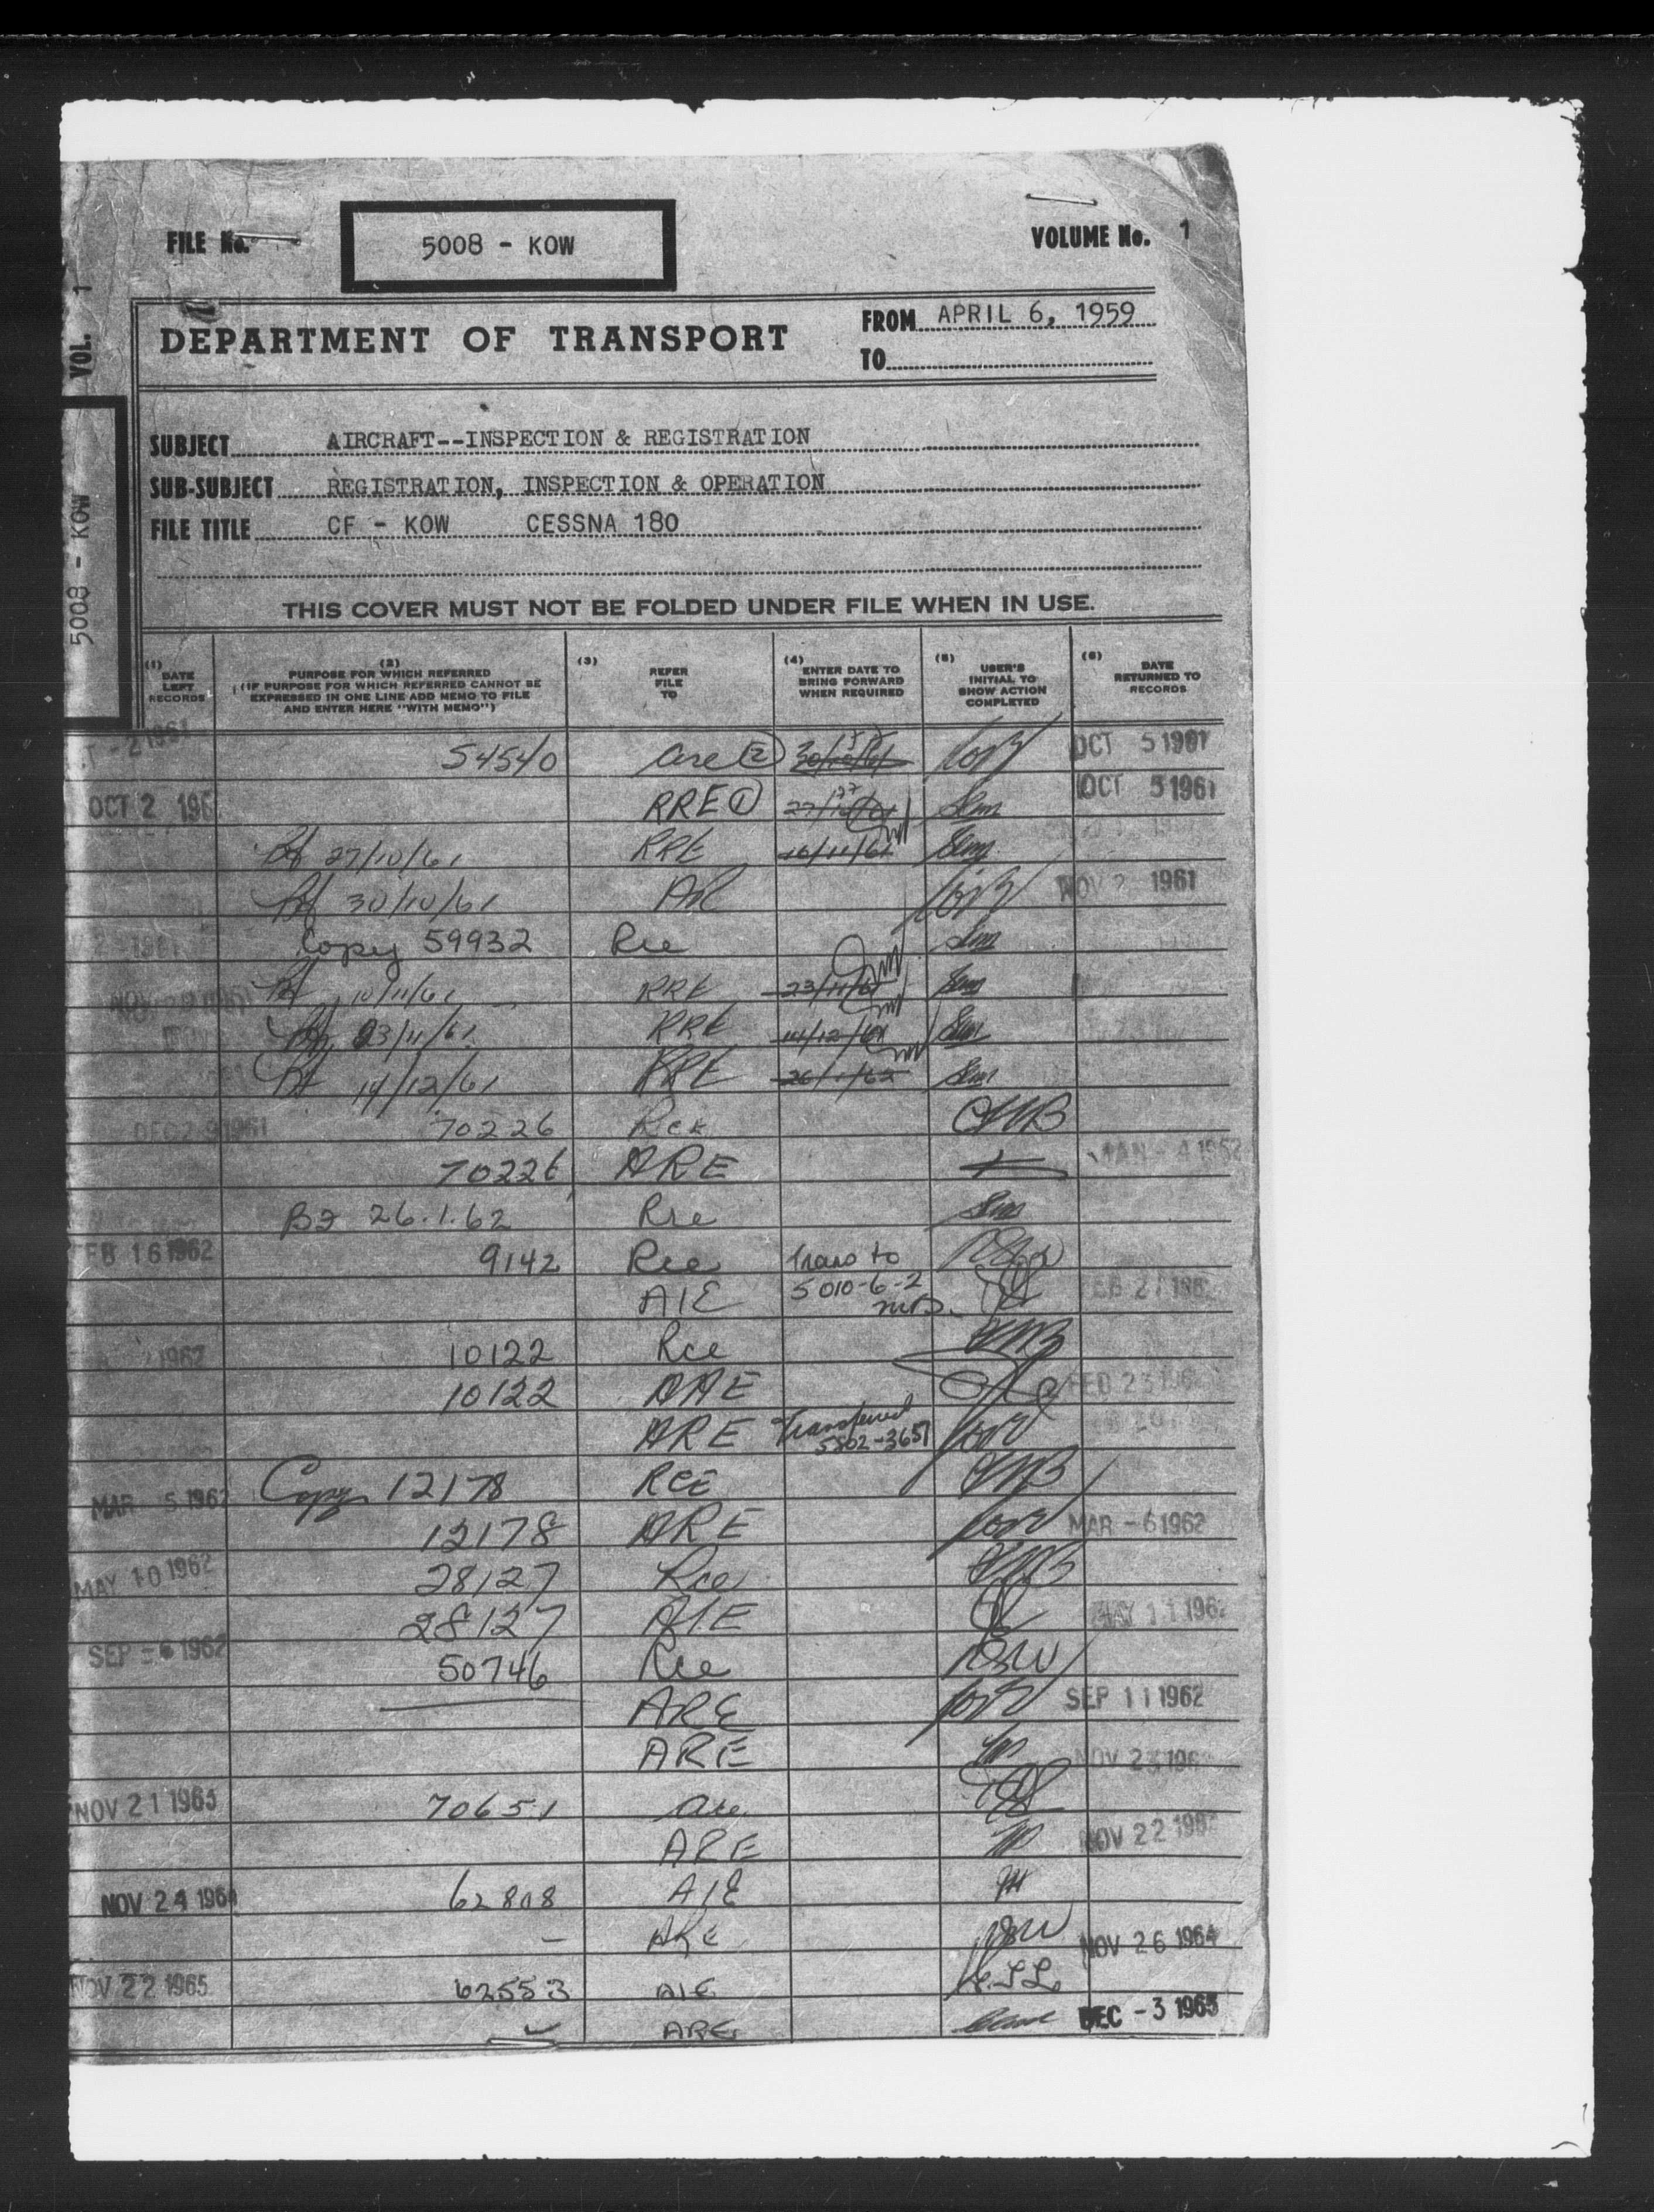 FILE No. 5008 - KOW VOLUME No. 1
VOL. 1
5008 - KOW
DEPARTMENT OF TRANSPORT
FROM APRIL 6, 1959
TO
SUBJECT AIRCRAFT--INSPECTION & REGISTRATION
SUB-SUBJECT REGISTRATION, INSPECTION & OPERATION
FILE TITLE CF - KOW CESSNA 180
THIS COVER MUST NOT BE FOLDED UNDER FILE WHEN IN USE.
(1) DATE LEFT RECORDS
(2) PURPOSE FOR WHICH REFERRED
(IF PURPOSE FOR WHICH REFERRED CANNOT BE
EXPRESSED IN ONE LINE ADD MEMO TO FILE
AND ENTER HERE "WITH MEMO")
(3) REFER FILE TO
(4) ENTER DATE TO BRING FORWARD WHEN REQUIRED
(5) USER'S INITIAL TO SHOW ACTION COMPLETED
(6) DATE RETURNED TO RECORDS
54540 are 2 OCT 5 1961
OCT 2 196 RRE 1 OCT 5 1961
27/10/61 RRE 10/11/61
30/10/61 AR NOV 2 1961
Copy 59932 Rce
10/11/61 RRE 23/11/61
23/11/61 RRE 14/12/61
14/12/61 RRE 26/1/62
DEC 29 1961 70226 Rce
70226 ARE JAN - 4 1962
BF 26.1.62 Rre
FEB 16 1962 9142 Rce Trans to
AIE 5010-6-2 FEB 21 1962
1962 10122 Rce
10122 AAE FEB 23 196
ARE Transferred 5802-3657
MAR 5 1962 Copy 12178 RCE
12178 ARE MAR - 6 1962
MAY 10 1962 28127 Rce
28127 AIE MAY 11 1962
SEP - 6 1962 50746 Rce RSW
ARE SEP 11 1962
ARE NOV 23 196
NOV 21 1963 70651 are
ARE NOV 22 196
NOV 24 1964 62808 AIE
— ARE RSW NOV 26 1964
NOV 22 1965 62553 AIE
ARE DEC - 3 1965